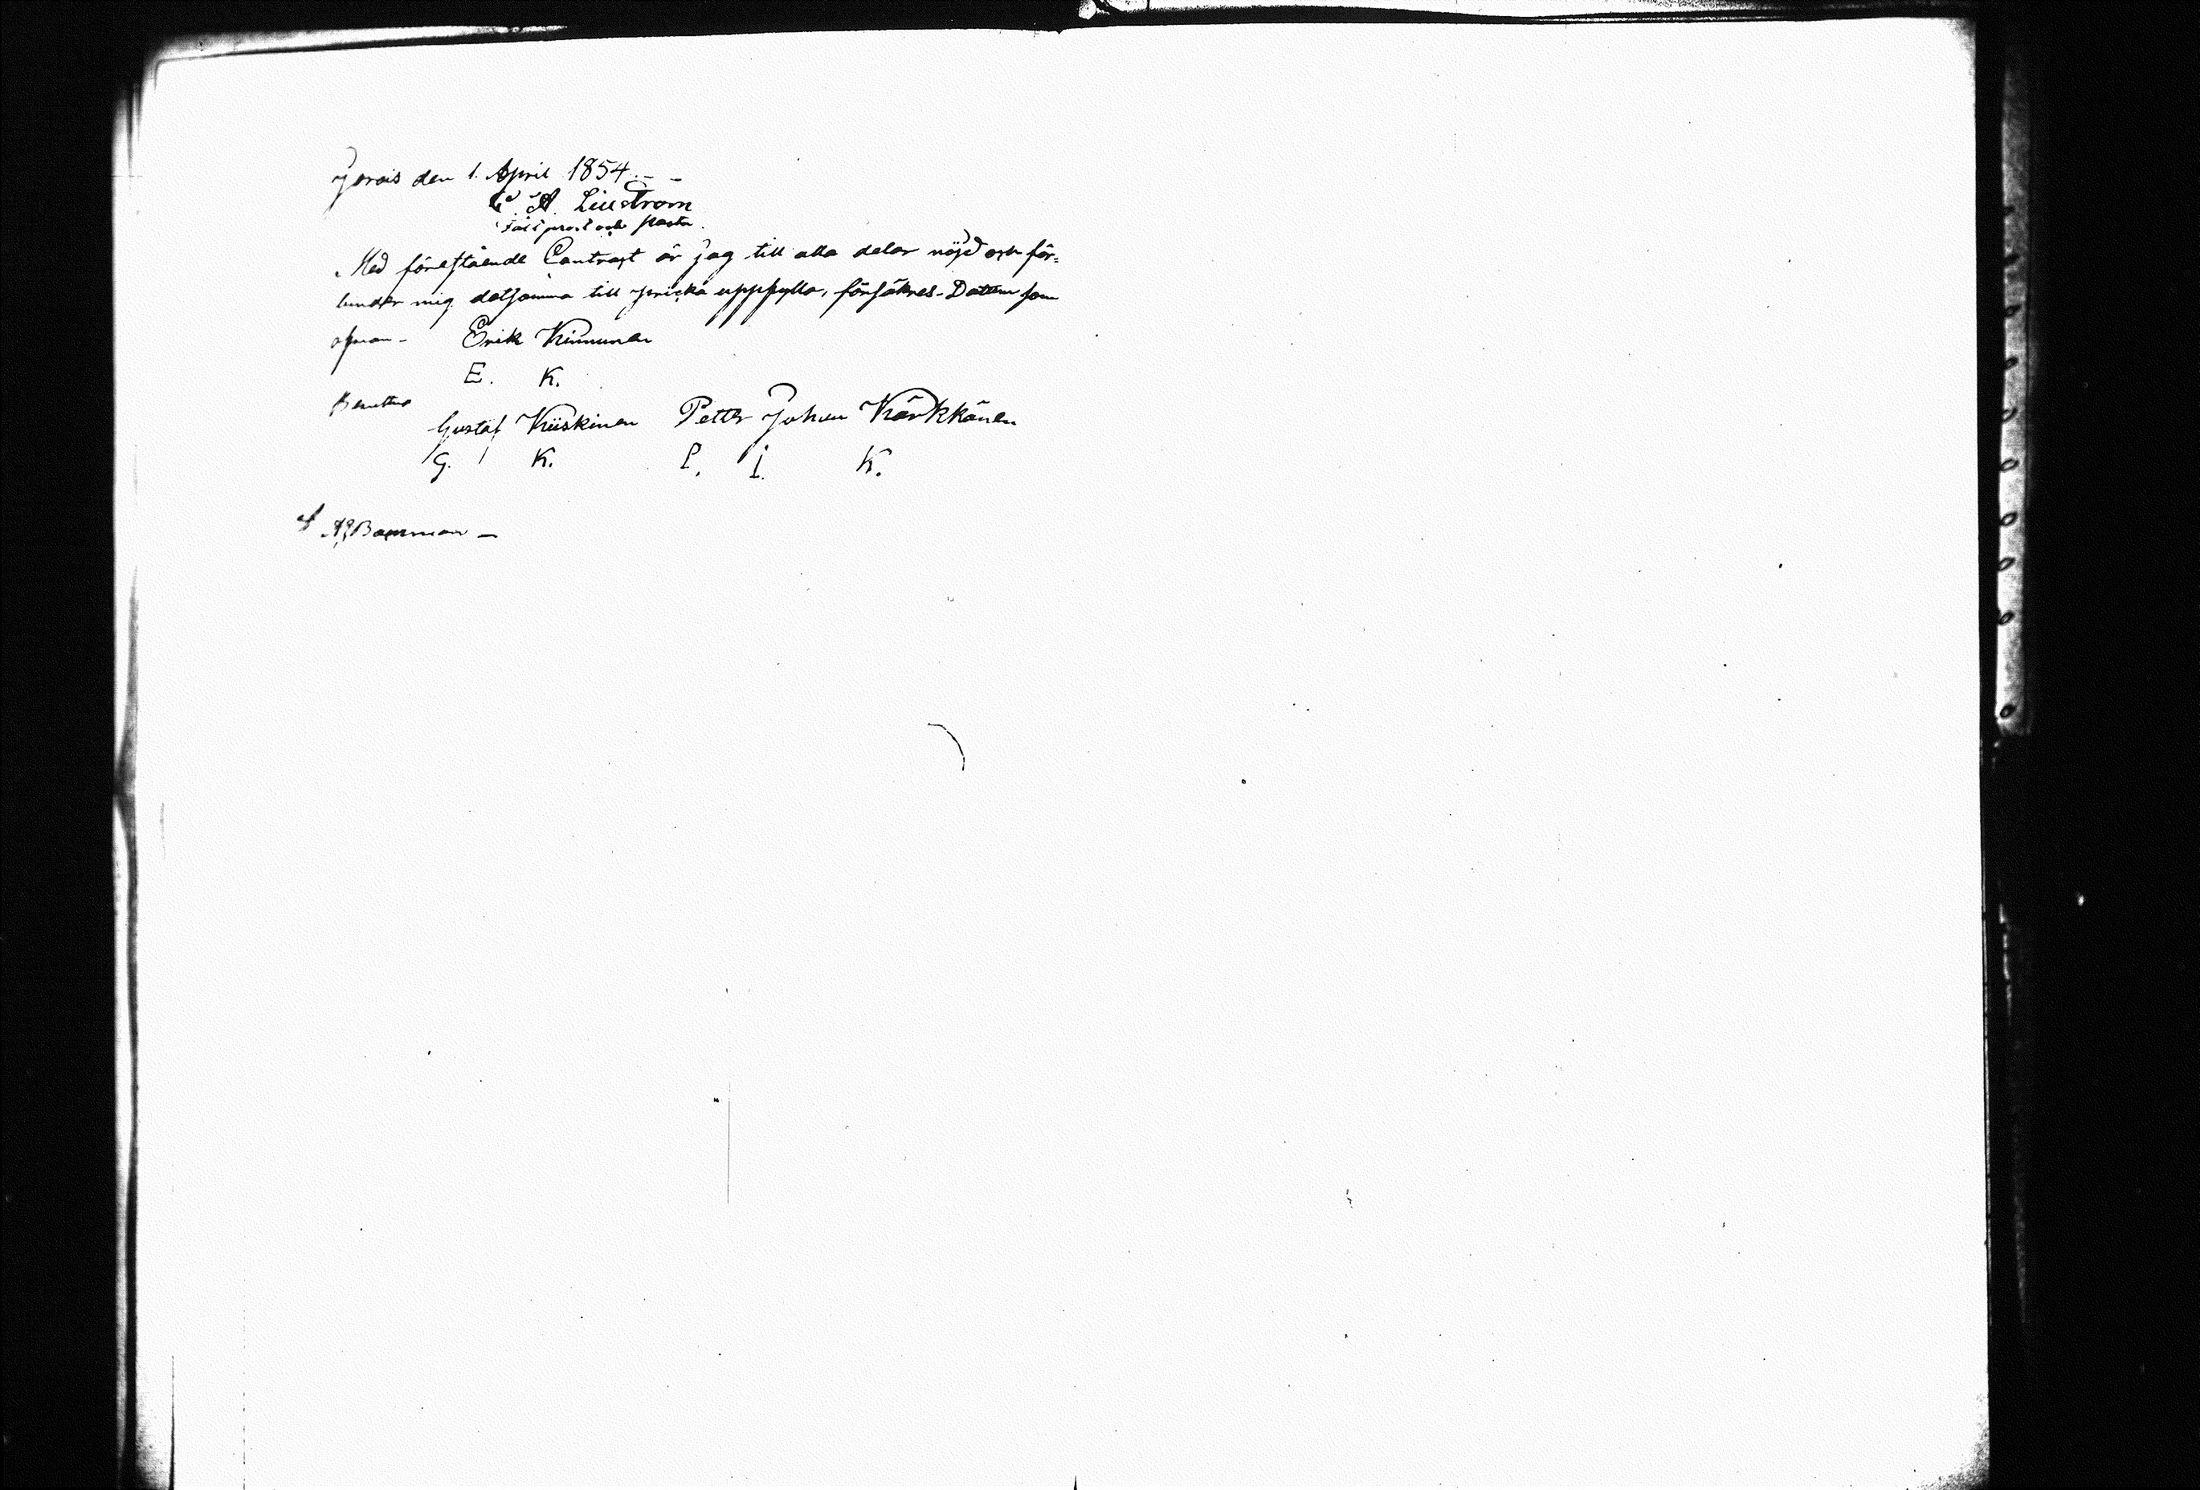 Jorois den 1. April 1854. – –
C. A. Lillström
Fält prost och Pastor.
Med föreftående Contract är jag till alla delar nöjd och för=
binder mig detsamma till pricka uppfylla, försäkres – Datum som
ofvan – Erik Kinnunen
E. K.
Bevittna
Gustaf Kiiskinen Petter Johan Kärkkänen
G. K. P. J. K.